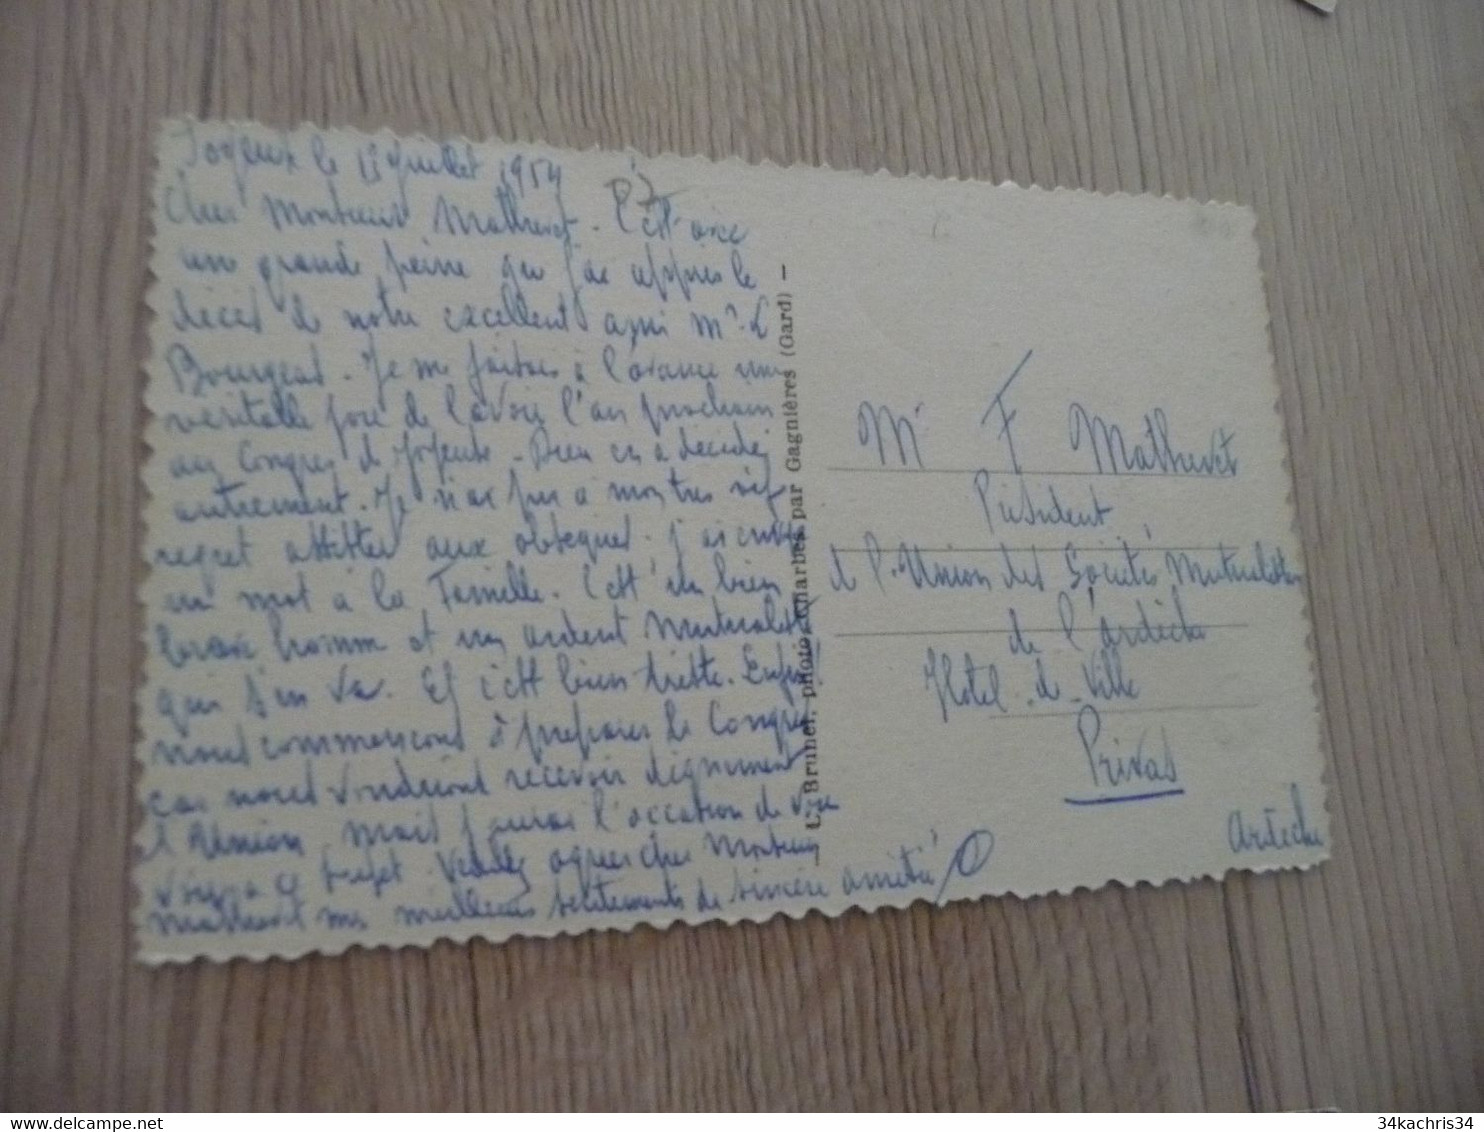 Joyeuse le 13 Juillet 1954
Cher Monsieur Mathevet. C'est avec
une grande peine que j'ai appris le
décès de notre excellent ami Mr. L
Bourgeas. Je me faisais à l'avance une
véritable joie de l'avoir l'an prochain
au Congrès de Joyeuse. Dieu en a décidé
autrement. Je n'ai pu à mon très vif
regret assister aux obsèques. J'ai envoyé
un mot à la Famille. C'est un bien
brave homme et un ardent Mutualiste
qui s'en va. Et c'est bien triste. Enfin!
nous commençons à préparer le Congrès
car nous voudrions recevoir dignement
l'Union. Mais j'aurai l'occasion de vous
voir à ce sujet. Veuillez agréer cher Monsieur
Mathevet mes meilleurs sentiments de sincère amitié
L. Brunel, photo, Charbes par Gagnières (Gard) —
Mr F Mathevet
Président
de l'Union des Sociétés Mutualistes
de l'Ardèche
Hôtel-de-Ville
Privas
Ardèche
34kachris34
delcampe.net